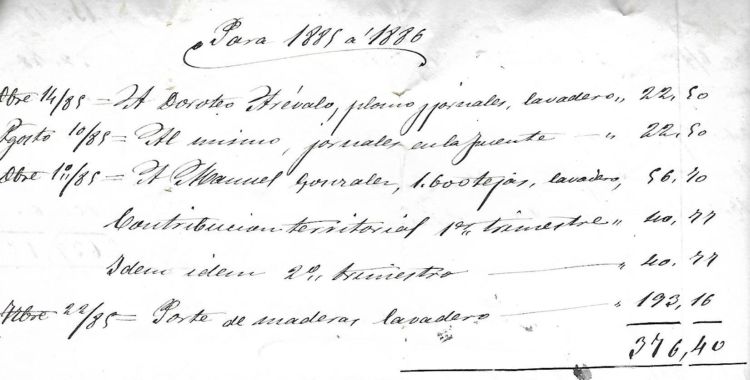 Para 1885 á 1886
Obre 14/85 = A Doroteo Arévalo, plomo y jornales, lavadero „ 22,50
Agosto 10/85 = Al mismo, jornales en la fuente — „ 22,50
Obre 1º/85 = A Manuel Gonzalez, 1.600 tejas, lavadero, 56,70
Contribucion territorial 1er trimestre „ 40,77
Idem idem 2º trimestre — „ 40,77
22/85 = Porte de maderas lavadero — „ 193,16
376,40